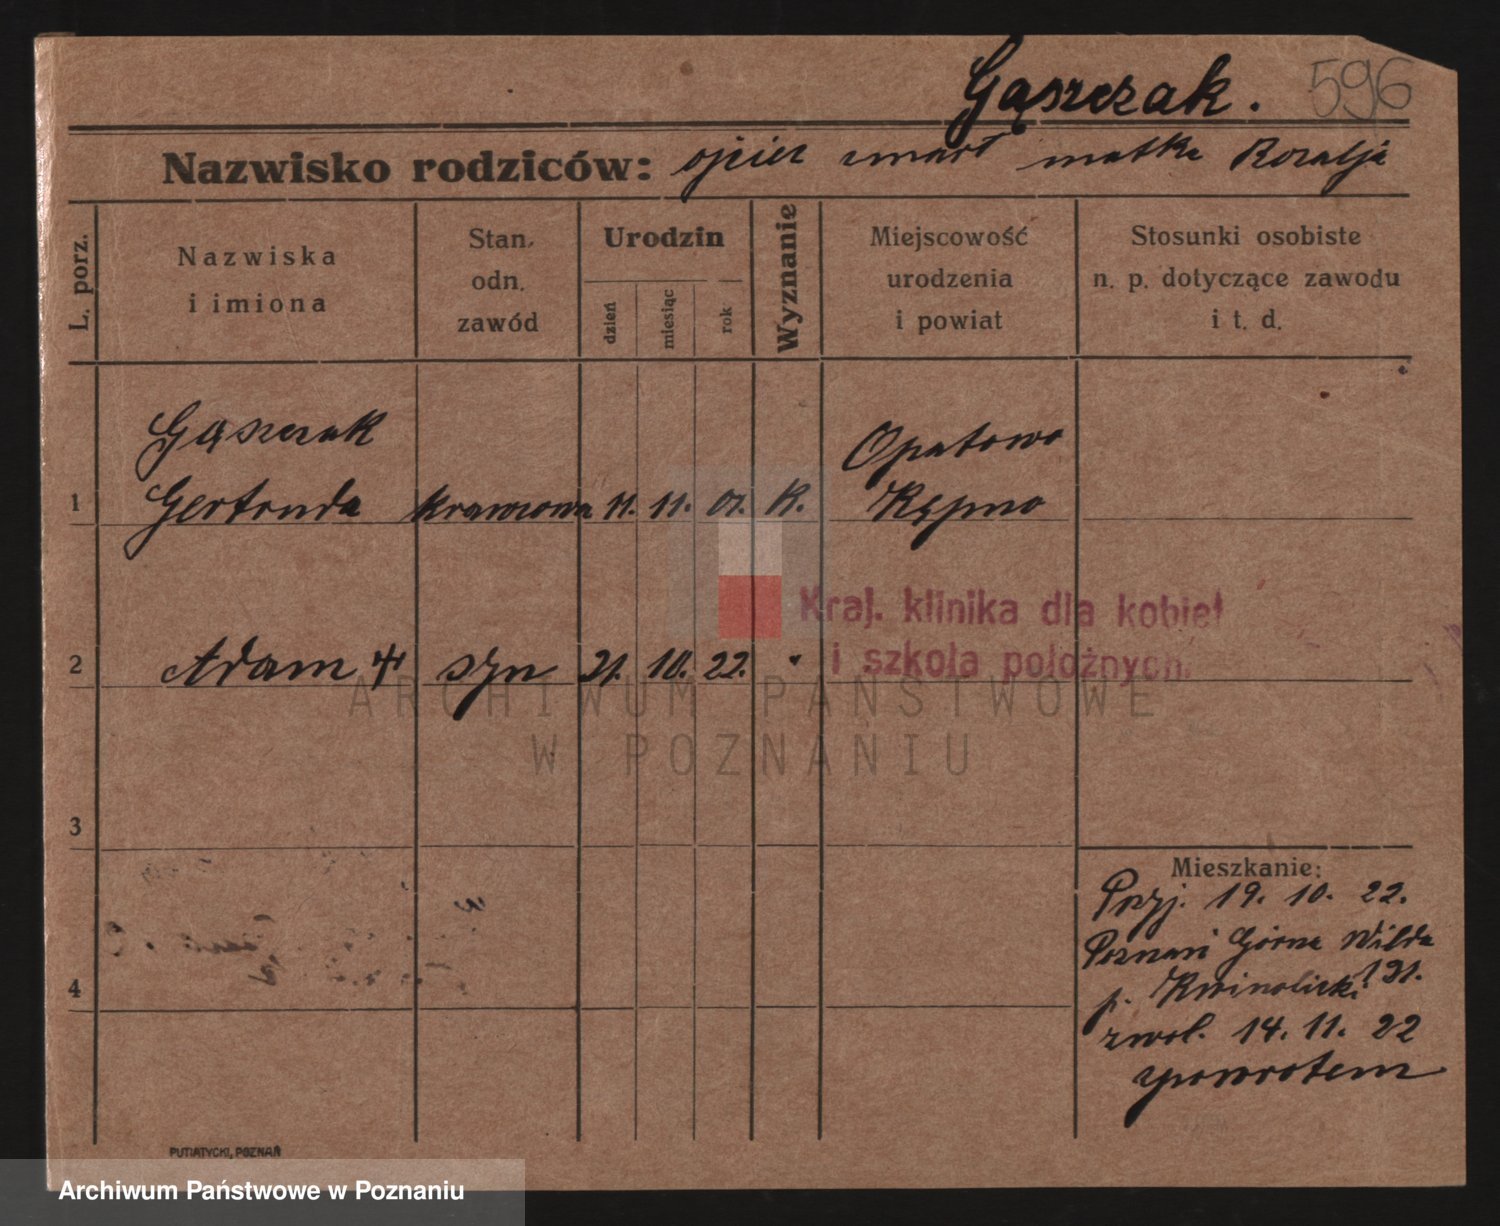 Gąszczak.
596
Nazwisko rodziców: ojciec zmarł matka Rozalja
L. porz.
Nazwiska
i imiona
Stan.
odn.
zawód
Urodzin
dzień
miesiąc
rok
Wyznanie
Miejscowość
urodzenia
i powiat
Stosunki osobiste
n. p. dotyczące zawodu
i t. d.
Gąszczak
Opatowo
1 Gertruda krawcowa 11. 11. 01. K. Kępno
Kraj. klinika dla kobiet
i szkoła położnych.
2 Adam syn 21. 10. 22.
ARCHIWUM PAŃSTWOWE
W POZNANIU
3
Mieszkanie:
Przyj. 19. 10. 22.
Poznań Górna Wilda
121.
p.
4
zwol. 14. 11. 22
zpowrotem
PUTIATYCKI, POZNAŃ
Archiwum Państwowe w Poznaniu